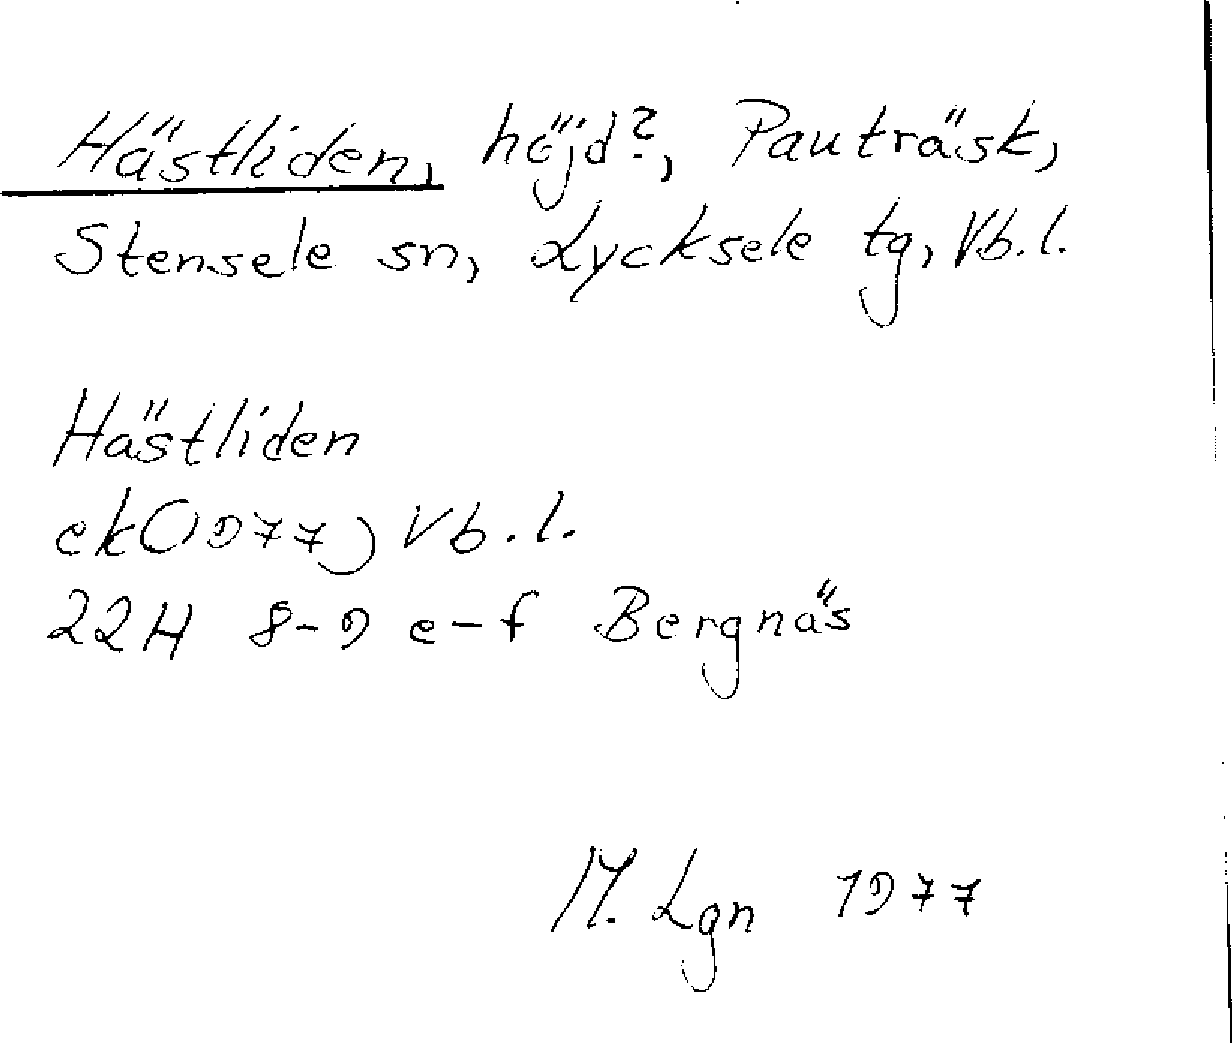 Hästliden, höjd?, Pauträsk,
Stensele sn, Lycksele tg, Vb.l.
Hästliden
ek(1977) Vb.l.
22H 8-9 e-f Bergnäs
M. Lgn 1977